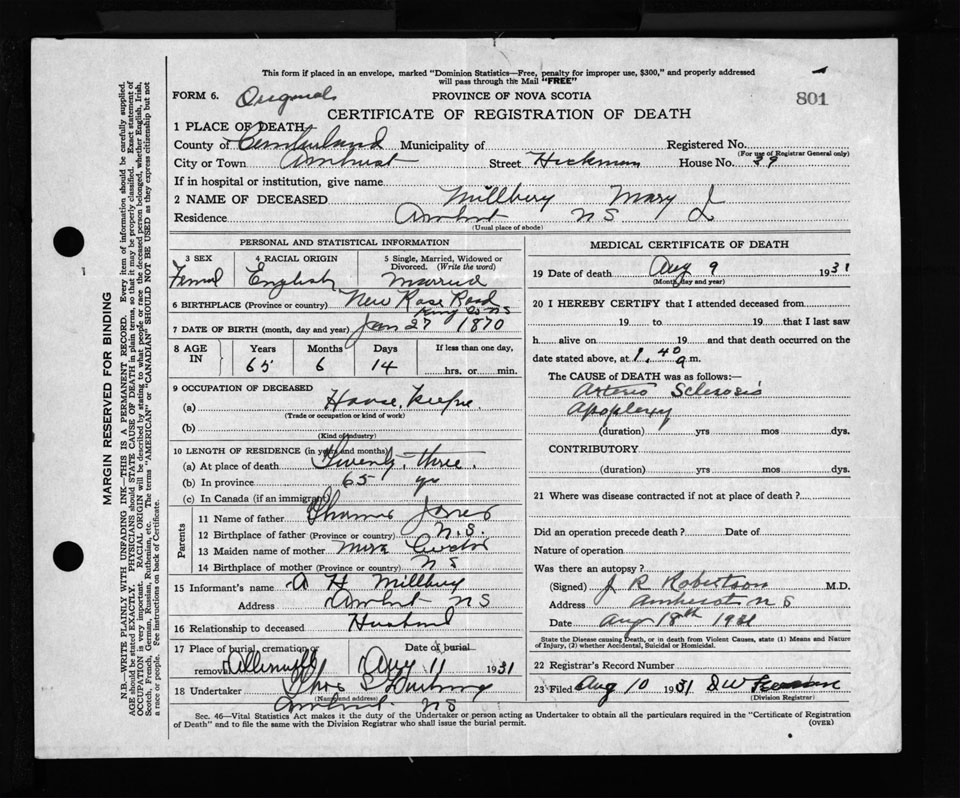 This form if placed in an envelope, marked "Dominion Statistics—Free, penalty for improper use, $300," and properly addressed
will pass through the Mail "FREE"
FORM 6. Originals PROVINCE OF NOVA SCOTIA 801
CERTIFICATE OF REGISTRATION OF DEATH
1 PLACE OF DEATH
County of Cumberland Municipality of Registered No.
(For use of Registrar General only)
City or Town Amherst Street Hickman House No. 39
If in hospital or institution, give name
2 NAME OF DECEASED Millbery Mary J
Residence Amherst NS
(Usual place of abode)
PERSONAL AND STATISTICAL INFORMATION
3 SEX 4 RACIAL ORIGIN 5 Single, Married, Widowed or
Divorced. (Write the word)
English Married
6 BIRTHPLACE (Province or country) New Ross Road
King Co NS
7 DATE OF BIRTH (month, day and year) Jan 27 1870
8 AGE IN Years Months Days If less than one day,
65 6 14 hrs. or min.
9 OCCUPATION OF DECEASED
(a) House
(Trade or occupation or kind of work)
(b)
(Kind of industry)
10 LENGTH OF RESIDENCE (in years and months)
(a) At place of death Twenty three
(b) In province 65 yr
(c) In Canada (if an immigrant)
Parents
11 Name of father Thomas Jones
12 Birthplace of father (Province or country) N.S.
13 Maiden name of mother
14 Birthplace of mother (Province or country) NS
15 Informant's name A H Millbery
Address Amherst NS
16 Relationship to deceased Husband
17 Place of burial, cremation or removal Date of burial
Aug 11 1931
18 Undertaker Thos
(Name and address)
Amherst NS
MEDICAL CERTIFICATE OF DEATH
19 Date of death Aug 9 1931
(Month, day and year)
20 I HEREBY CERTIFY that I attended deceased from
19 to 19 that I last saw
h alive on 19 and that death occurred on the
date stated above, at 1.40 a.m.
The CAUSE of DEATH was as follows:—
Arterio Sclerosis
Apoplexy
(duration) yrs mos dys.
CONTRIBUTORY
(duration) yrs mos dys.
21 Where was disease contracted if not at place of death?
Did an operation precede death? Date of
Nature of operation
Was there an autopsy?
(Signed) J R Robertson M.D.
Address Amherst N S
Date Aug 18th 1931
State the Disease causing Death, or in death from Violent Causes, state (1) Means and Nature
of Injury, (2) whether Accidental, Suicidal or Homicidal.
22 Registrar's Record Number
23 Filed Aug 10 1931
(Division Registrar)
Sec. 46—Vital Statistics Act makes it the duty of the Undertaker or person acting as Undertaker to obtain all the particulars required in the "Certificate of Registration
of Death" and to file the same with the Division Registrar who shall issue the burial permit. (OVER)
MARGIN RESERVED FOR BINDING
N.B.—WRITE PLAINLY WITH UNFADING INK—THIS IS A PERMANENT RECORD. Every item of information should be carefully supplied.
AGE should be stated EXACTLY. PHYSICIANS should STATE CAUSE OF DEATH in plain terms, so that it may be properly classified. Exact statement of
OCCUPATION is very important. RACIAL ORIGIN will be described by stating to what people or race the deceased person belonged, whether English, Irish,
Scotch, French, German, Russian, Ruthenian, etc. The terms "AMERICAN" or "CANADIAN" SHOULD NOT BE USED as they express citizenship but not
a race or people. Fee instructions on back of Certificate.